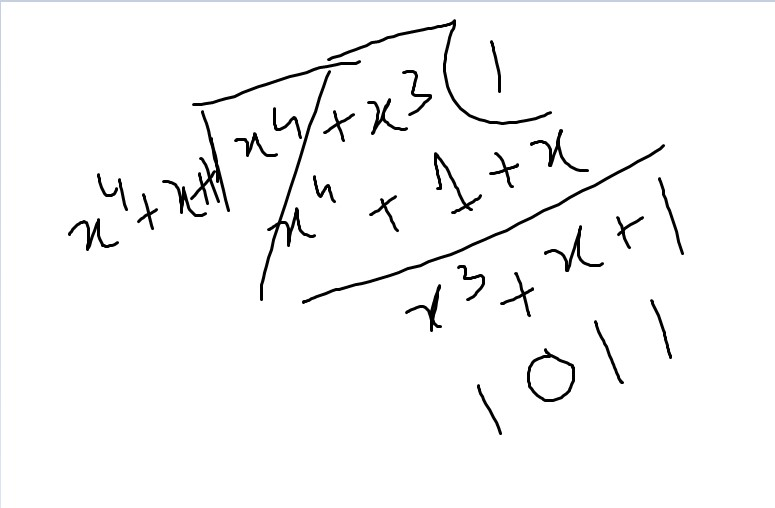 x⁴+x+1 x⁴+x³ 1
x⁴ + 1 + x
x³ + x + 1
1 0 1 1